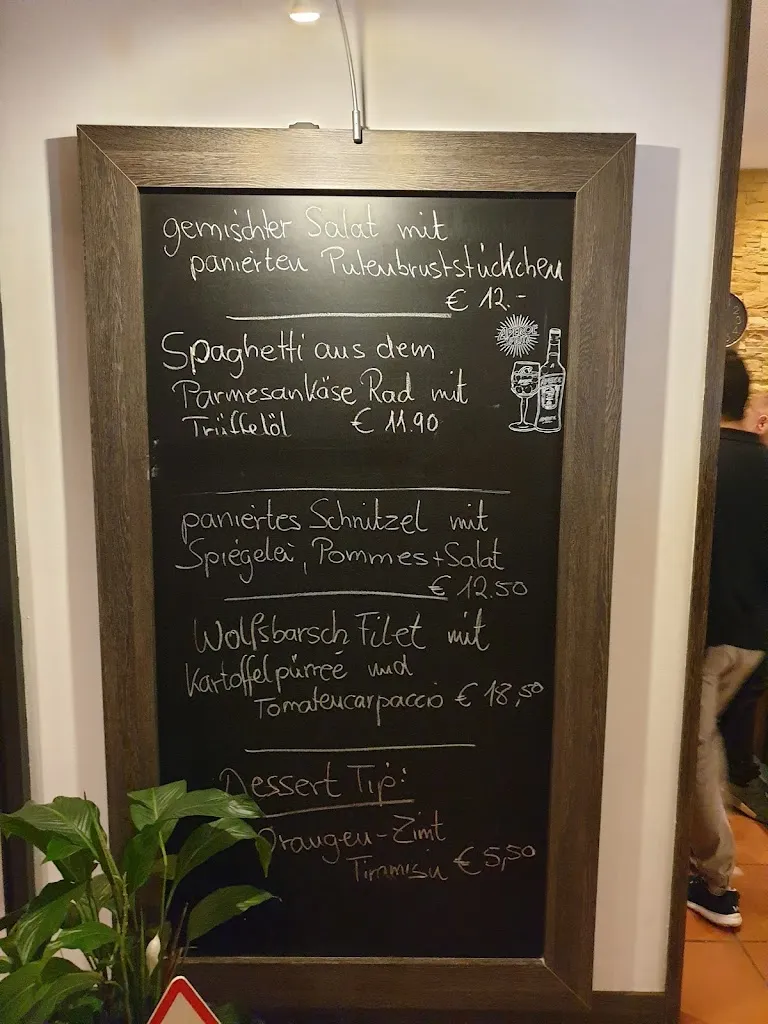 gemischter Salat mit
panierten Putenbruststückchen
€ 12.-
Spaghetti aus dem
Parmesankäse Rad mit
Trüffelöl € 11.90
paniertes Schnitzel mit
Spiegelei, Pommes+Salat
€ 12.50
Wolfsbarsch Filet mit
Kartoffelpürreé und
Tomatencarpaccio € 18,50
Dessert Tip:
Orangen-Zimt
Tirmmisu € 5,50